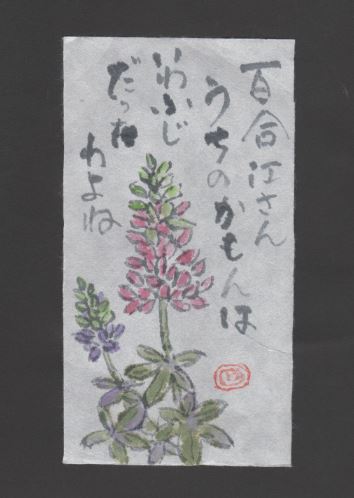 百合江さん
うちのかもんは
いわふじ
だった
わよね